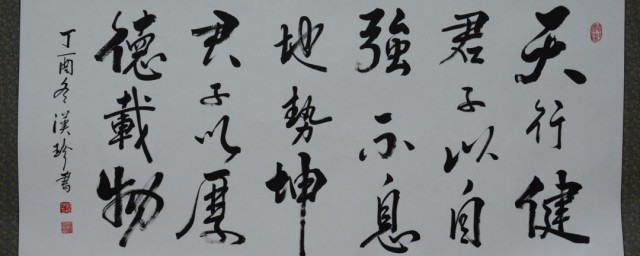 天行健
君子以自
強不息
地勢坤
君子以厚
德載物
丁酉冬漢珍書